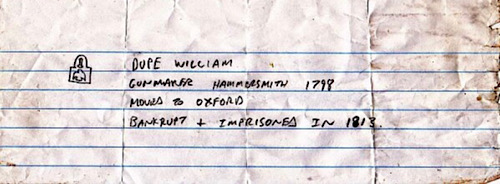 DUPE WILLIAM
GUNMAKER HAMMERSMITH 1798
MOVED TO OXFORD
BANKRUPT + IMPRISONED IN 1813.